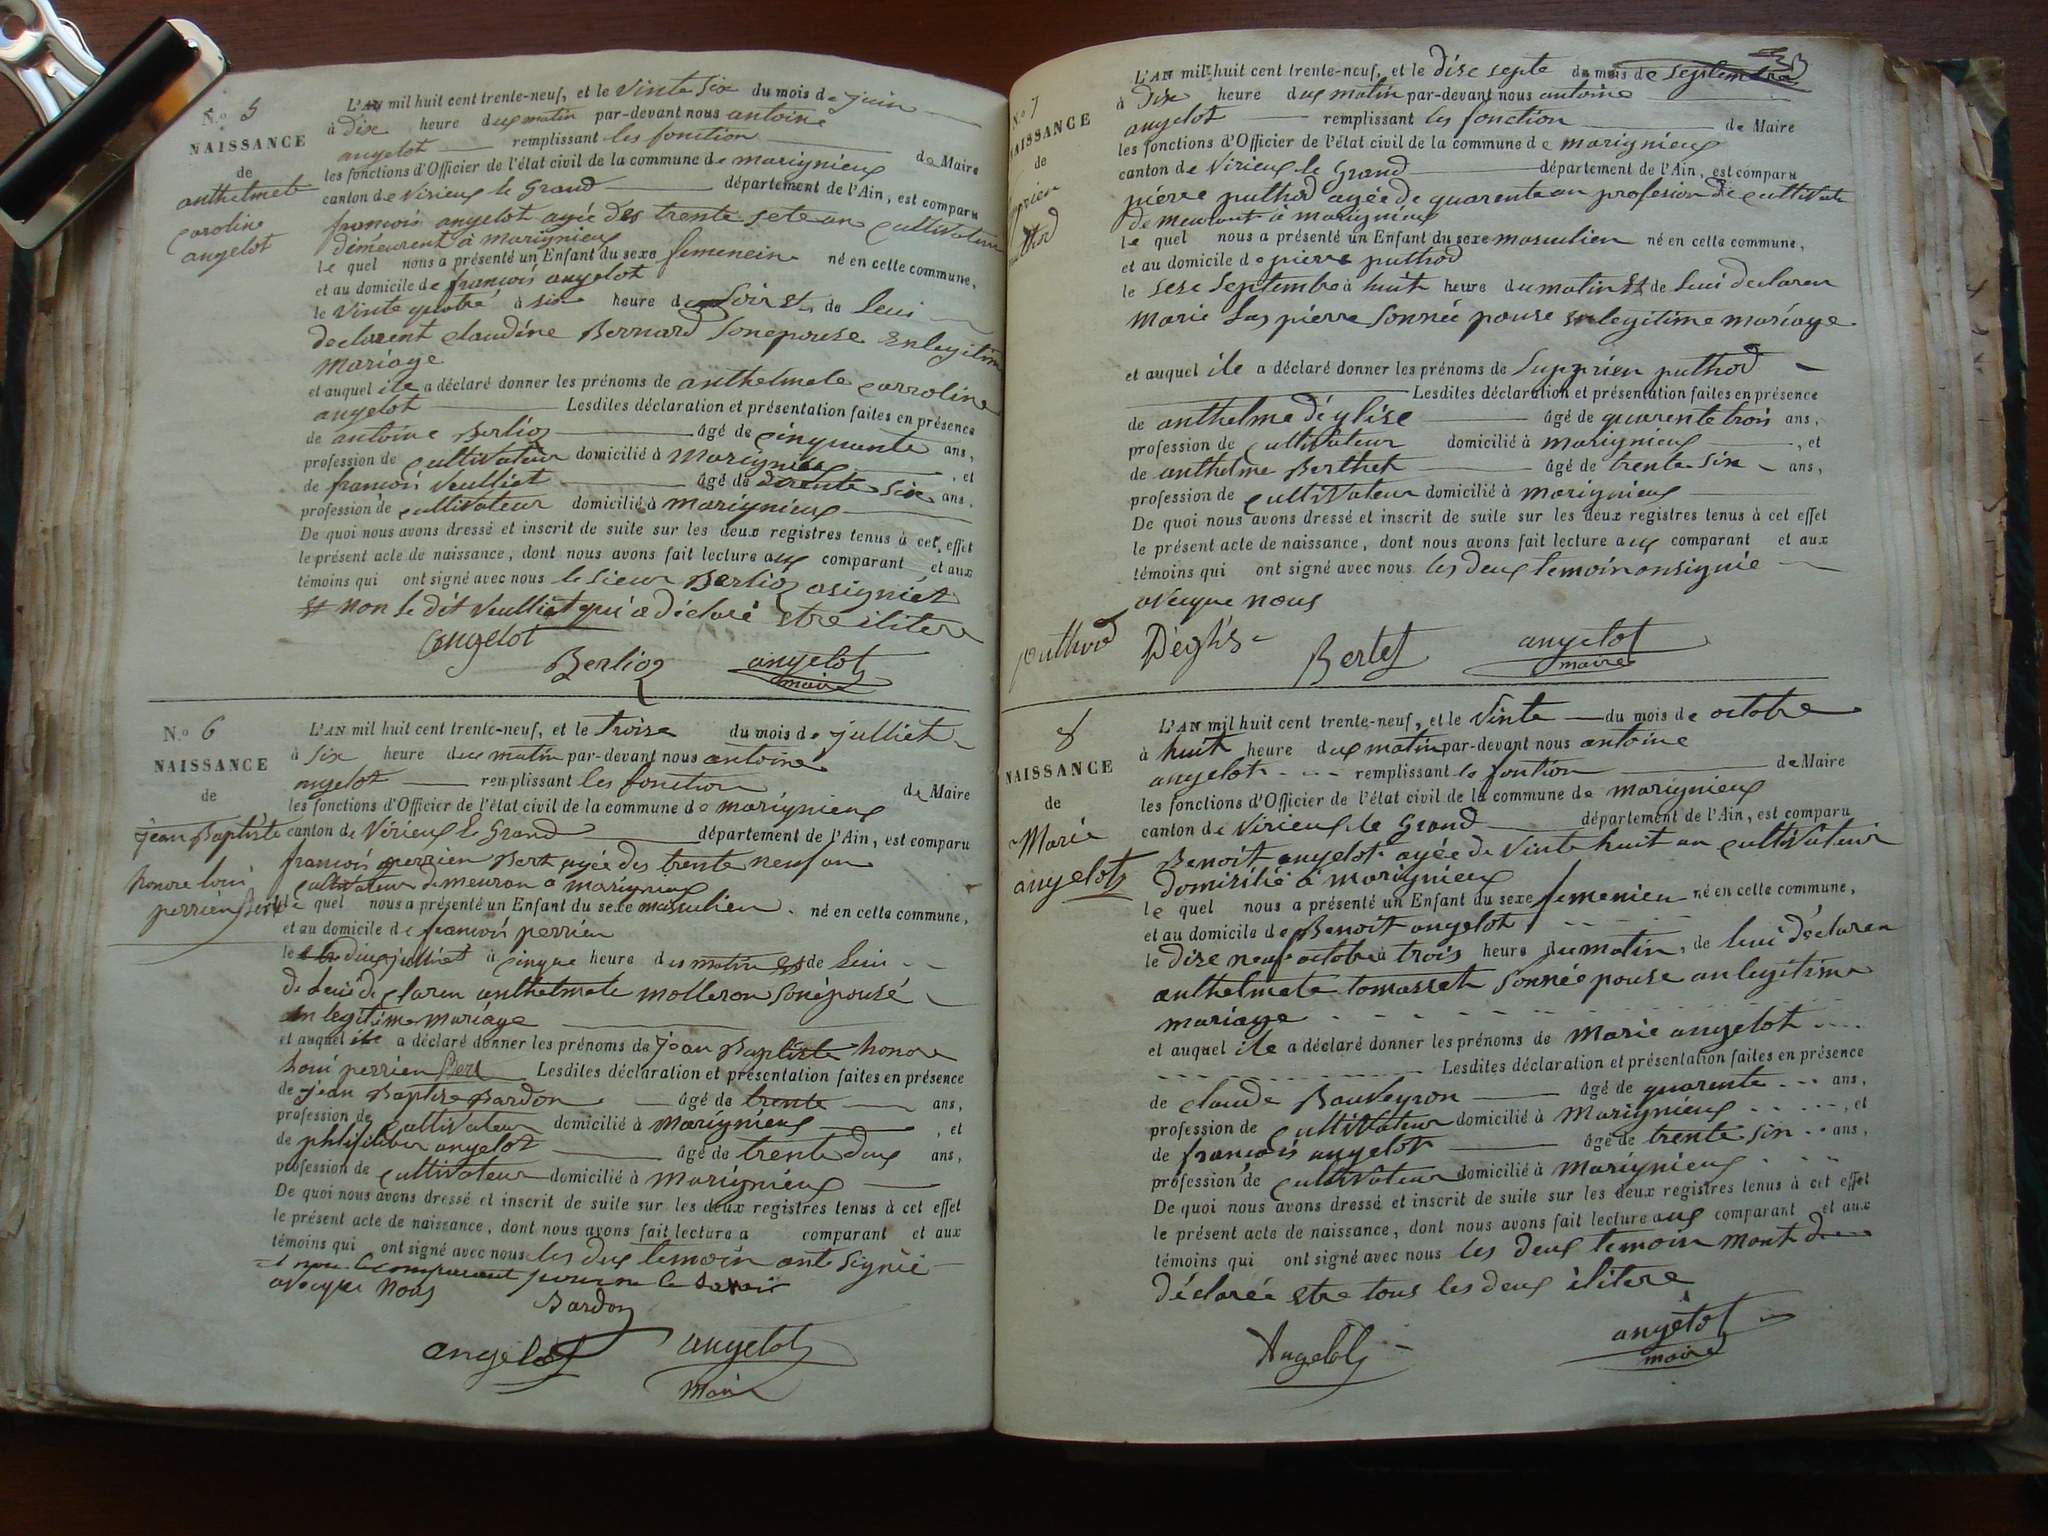 N.o 5
NAISSANCE
de
anthelmete
caroline
angelot
L'AN mil huit cent trente-neuf, et le vinte six du mois de juin
à dix heure dux matin par-devant nous antoine
angelot remplissant les fonction de Maire
les fonctions d'Officier de l'état civil de la commune de marignieux
canton de Virieux le Grand département de l'Ain, est comparu
francois angelot agée des trente sete an cultivateur
demeurent à marignieux
le quel nous a présenté un Enfant du sexe femenein né en cette commune,
et au domicile de francois angelot
le vinte quatre à six heure du soir et de leui
declarent claudine Bernard sonepouse en legitime
mariage
et auquel ile a déclaré donner les prénoms de anthelmete carroline
angelot Lesdites déclaration et présentation faites en présence
de antoine Berlioz âgé de cinquante ans,
profession de cultivateur domicilié à marignieux, et
de francois veulliet âgé de trente six ans,
profession de cultivateur domicilié à marignieux
De quoi nous avons dressé et inscrit de suite sur les deux registres tenus à cet effet
le présent acte de naissance, dont nous avons fait lecture aux comparant et aux
témoins qui ont signé avec nous le sieur Berlioz asigniét
et non le dit veulliet qui a déclaré etre ilitere
angelot
Berlioz angelot
maire
N.o 6
NAISSANCE
de
jean Baptiste
honore loui
perrien Bert
L'AN mil huit cent trente-neuf, et le troise du mois de julliet
à six heure dux matin par-devant nous antoine
angelot remplissant les fonction de Maire
les fonctions d'Officier de l'état civil de la commune de marignieux
canton de Virieux le Grand département de l'Ain, est comparu
francois perrien Bert agée des trente neuf an
cultivateur demeuran a marignieux
le quel nous a présenté un Enfant du sexe masculien né en cette commune,
et au domicile de francois perrien
le deux julliet à cinque heure du matin et de leui
de leui de claren anthelmete molleron sonépousé
en legitime mariage
et auquel ile a déclaré donner les prénoms de jean Baptiste honore
loui perrien Bert Lesdites déclaration et présentation faites en présence
de jean Baptise Bardon âgé de trente ans,
profession de cultivateur domicilié à marignieux, et
de angelot âgé de trente deux ans,
profession de cultivateur domicilié à marignieux
De quoi nous avons dressé et inscrit de suite sur les deux registres tenus à cet effet
le présent acte de naissance, dont nous avons fait lecture a comparant et aux
témoins qui ont signé avec nous les deux temoin ont signié
et non le comparant pour ne le savoir
avecque nous
Bardon
angelot angelot
maire
N.o 7
NAISSANCE
de
L'AN mil huit cent trente-neuf, et le dise septe du mois de septembre
à dix heure dux matin par-devant nous antoine
angelot remplissant les fonction de Maire
les fonctions d'Officier de l'état civil de la commune de marignieux
canton de Virieux le Grand département de l'Ain, est comparu
piérre puthod agée de quarente an profesion de cultivate
demeurant à marignieux
le quel nous a présenté un Enfant du sexe masculien né en cette commune,
et au domicile de pierre puthod
le sese septembre à huit heure du matin et de leui declaren
marie Las pierre sonnée pouse en legitime mariage
et auquel ile a déclaré donner les prénoms de Supprien puthod
Lesdites déclaration et présentation faites en présence
de anthelme déglise âgé de quarente trois ans,
profession de cultivateur domicilié à marignieux, et
de anthelme Berthet âgé de trente six ans,
profession de cultivateur domicilié à marignieux
De quoi nous avons dressé et inscrit de suite sur les deux registres tenus à cet effet
le présent acte de naissance, dont nous avons fait lecture aux comparant et aux
témoins qui ont signé avec nous les deux temoin onsignié
avecque nous
puthod Déglis Bertet angelot
maire
8
NAISSANCE
de
Marie
angelot
L'AN mil huit cent trente-neuf, et le vinte du mois de octobre
à huit heure dux matin par-devant nous antoine
angelot remplissant le fontion de Maire
les fonctions d'Officier de l'état civil de la commune de marignieux
canton de Virieux le Grand département de l'Ain, est comparu
Benoit angelot agée de vinte huit an cultivateur
domisilié à marignieux
le quel nous a présenté un Enfant du sexe femenien né en cette commune,
et au domicile de Benoit angelot
le dixe neuf octobre à trois heure du matin, de leui déclaren
anthelmete tomasset sonnée pouse an legitime
mariage
et auquel ile a déclaré donner les prénoms de Marie angelot
Lesdites déclaration et présentation faites en présence
de claude Bauveyron âgé de quarente ans,
profession de cultivateur domicilié à marignieux, et
de francois angelot âgé de trente sin ans,
profession de cultivateur domicilié à marignieux
De quoi nous avons dressé et inscrit de suite sur les deux registres tenus à cet effet
le présent acte de naissance, dont nous avons fait lecture aux comparant et aux
témoins qui ont signé avec nous les deux temoin mont
déclarée etre tous les deux ilitere
Angelot angelot
maire